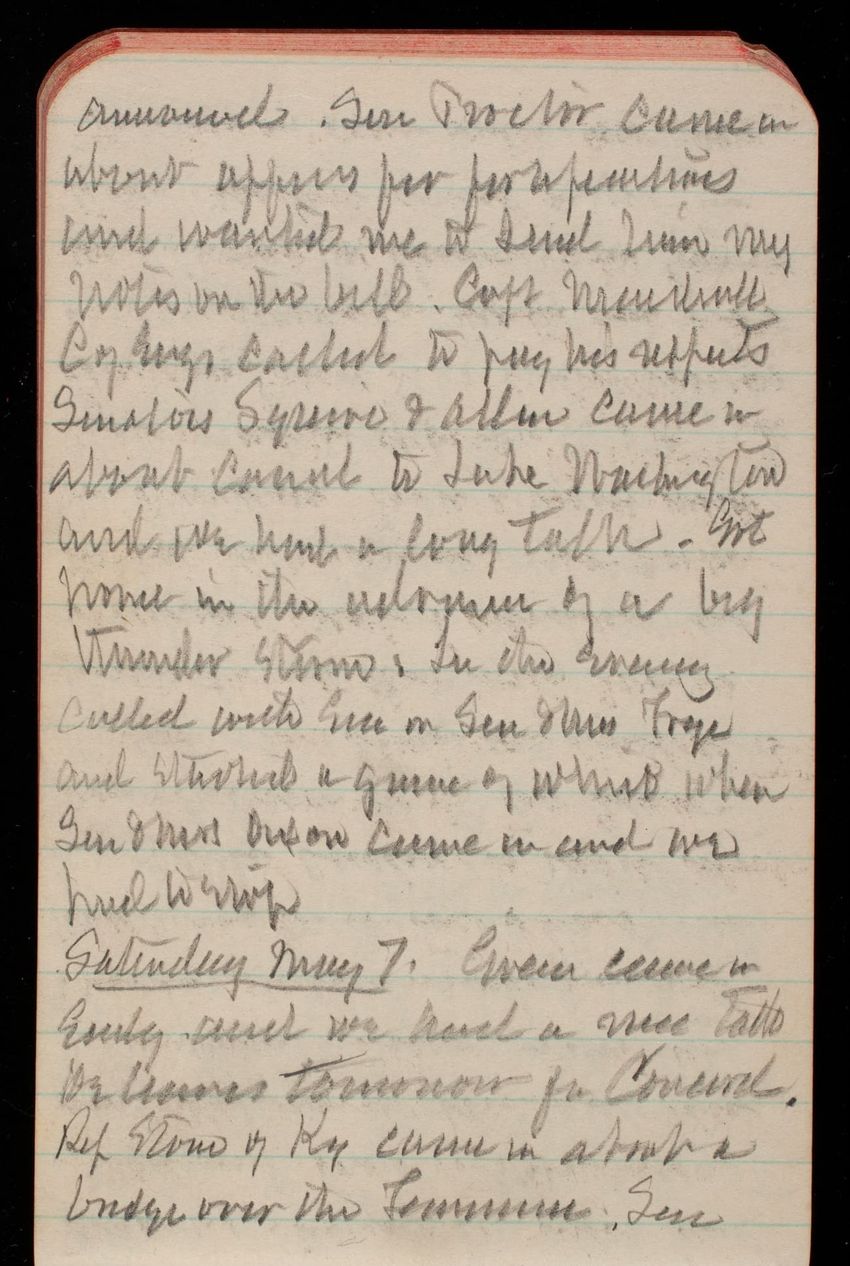 announced. Sen Proctor came in
about affairs for fortifications
and wanted me to send him my
notes on the bill. Capt
Cof Engs called to pay his respects
Senators Squire & Allen came in
about Canal to Lake Washington
and we had a long talk. Got
home in the advance of a big
thunder storm. In the evening
called with on Sen & Mrs Frye
and started a game of whist when
Sen & Mrs Dixon came in and we
had to stop
Saturday May 7. Green came in
Early and we had a nice talk
He leaves tomorrow for Concord.
Rep Stone of Ky came in about a
bridge over the Tennessee. Sen